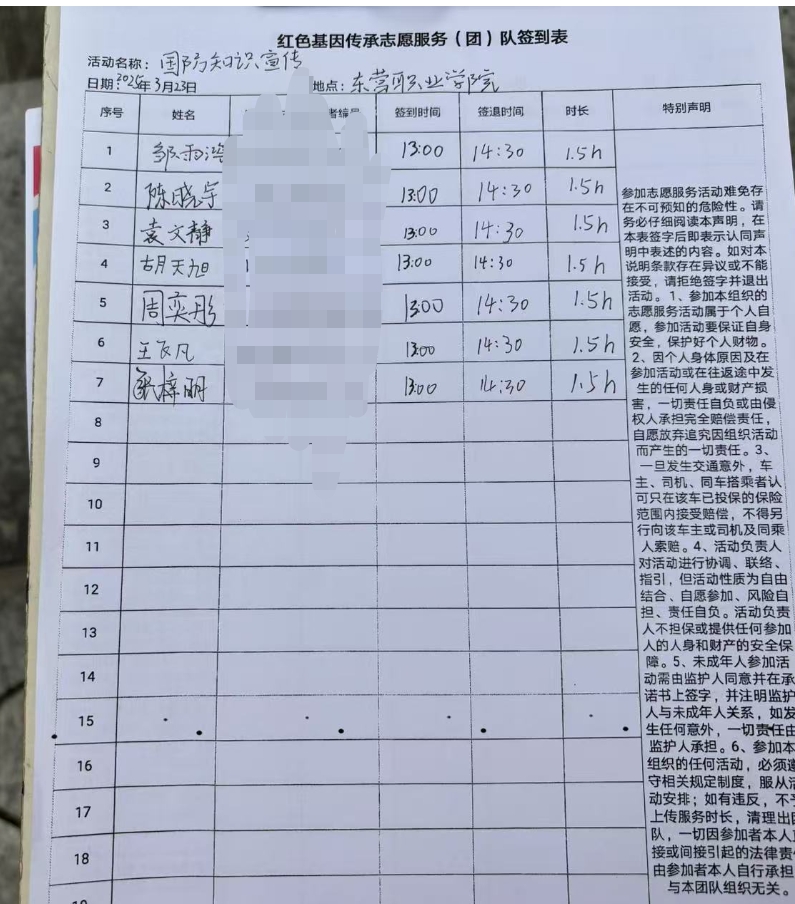 红色基因传承志愿服务（团）队签到表
活动名称：国防知识宣传
日期：2025年3月23日 地点：东营职业学院
序号 姓名 者编号 签到时间 签退时间 时长 特别声明
1 邹雨 13:00 14:30 1.5h
2 陈晓宇 13:00 14:30 1.5h
3 袁文静 13:00 14:30 1.5h
4 胡天旭 13:00 14:30 1.5h
5 周奕彤 13:00 14:30 1.5h
6 王飞凡 13:00 14:30 1.5h
7 梓明 13:00 14:30 1.5h
8
9
10
11
12
13
14
15
16
17
18
参加志愿服务活动难免存
在不可预知的危险性。请
务必仔细阅读本声明，在
本表签字后即表示认同声
明中表述的内容。如对本
说明条款存在异议或不能
接受，请拒绝签字并退出
活动。1、参加本组织的
志愿服务活动属于个人自
愿，参加活动要保证自身
安全，保护好个人财物。
2、因个人身体原因及在
参加活动或在往返途中发
生的任何人身或财产损
害，一切责任自负或由侵
权人承担完全赔偿责任，
自愿放弃追究因组织活动
而产生的一切责任。3、
一旦发生交通意外，车
主、司机、同车搭乘者认
可只在该车已投保的保险
范围内接受赔偿，不得另
行向该车主或司机及同乘
人索赔。4、活动负责人
对活动进行协调、联络、
指引，但活动性质为自由
结合、自愿参加、风险自
担、责任自负。活动负责
人不担保或提供任何参加
人的人身和财产的安全保
障。5、未成年人参加活
动需由监护人同意并在承
诺书上签字，并注明监护
人与未成年人关系，如发
生任何意外，一切责任由
监护人承担。6、参加本
组织的任何活动，必须遵
守相关规定制度，服从活
动安排；如有违反，不予
上传服务时长，清理出团
队，一切因参加者本人直
接或间接引起的法律责任
由参加者本人自行承担
与本团队组织无关。